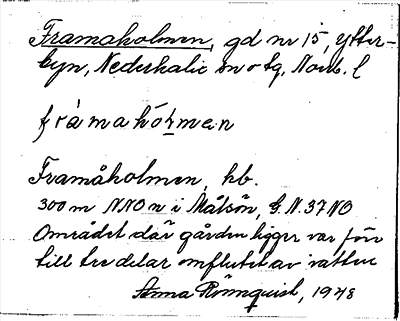 Framaholmen, gd nr 15, Ytter-
byn, Nederkalix sn o tg, Norrb. l
fràmahól̩men
Framåholmen, hb.
300 m NNO n i Målsön, G.N. 37 NO
Området där gården ligger var förr
till tre delar omflutet av vatten
Anna Rönnquist, 1948